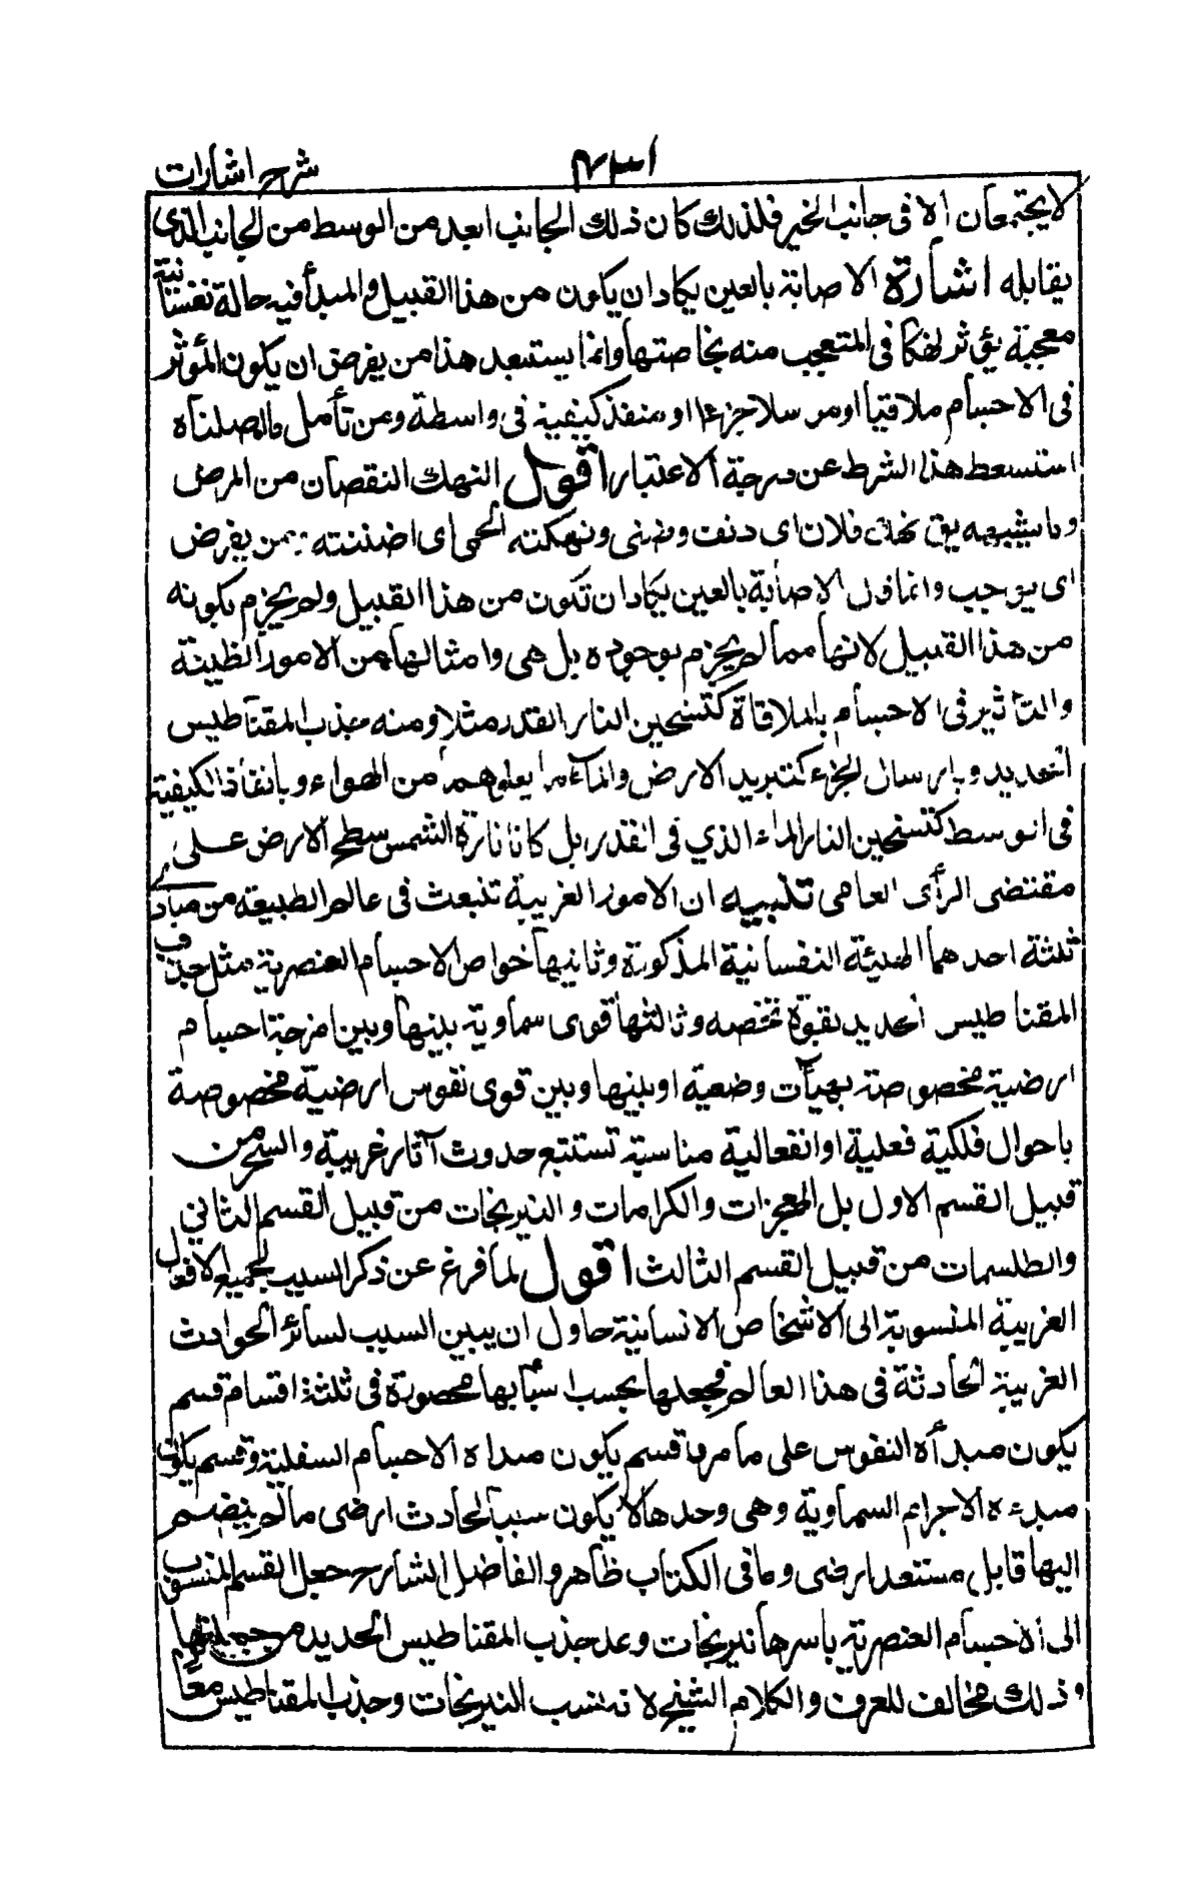 شرح اشارات
لا يجتمعان الا فى جانب الخير فلذلك كان ذلك الجانب ابعد من الوسط من الجانب الذى
يقابله اشارة الاصابة بالعين يكاد ان يكون من هذا القبيل والمبدأ فيه حالة نفسانية
معجبة يؤثر نهكا فى المتعجب منه بخاصتها وانما يستبعد هذا من يفرض ان يكون المؤثر
فى الاجسام ملاقيا او مرسلا جزءا او منفذ كيفية فى واسطة ومن تأمل ما اصلناه
استسقط هذا الشرط عن درجة الاعتبار اقول النهك النقصان من المرض
وما يشبهه يق نهك فلان اى دنف وضنى ونهكته الحمى اى اضنته من يفرض
اى يوجب وانما قال الاصابة بالعين يكاد ان تكون من هذا القبيل ولم يجزم بكونه
من هذا القبيل لانها مما لم يجزم بوجوده بل هى وامثالها من الامور الظنية
والتأثير فى الاجسام بالملاقاة كتسخين النار القدر مثلا ومنه جذب المقناطيس
الحديد وبارسال الجزء كتبريد الارض والماء ما يعلوهما من الهواء وبانفاذ الكيفية
فى الوسط كتسخين النار الماء الذي فى القدر بل كانارة الشمس سطح الارض على
مقتضى الرأى العامى تنبيه ان الامور الغريبة تنبعث فى عالم الطبيعة من مبادى
ثلثة احدهما الهيئة النفسانية المذكورة وثانيها خواص الاجسام العنصرية مثل جذب
المقناطيس الحديد بقوة تخصه وثالثها قوى سماوية بينها وبين امزجة اجسام
ارضية مخصوصة بهيآت وضعية او بينها وبين قوى نفوس ارضية مخصوصة
باحوال فلكية فعلية او انفعالية مناسبة تستتبع حدوث آثار غريبة والسحر من
قبيل القسم الاول بل المعجزات والكرامات والنيرنجات من قبيل القسم الثاني
والطلسمات من قبيل القسم الثالث اقول لما فرغ عن ذكر السبب لجميع الافعال
الغريبة المنسوبة الى الاشخاص الانسانية حاول ان يبين السبب لسائر الحوادث
الغريبة الحادثة فى هذا العالم فجعلها بحسب اسبابها محصورة فى ثلثة اقسام قسم
يكون مبدأه النفوس على ما مر وقسم يكون مبداه الاجسام السفلية وقسم يكون
مبدءه الاجرام السماوية وهى وحدها لا يكون سببا لحادث ارضى ما لم ينضم
اليها قابل مستعد ارضى وما فى الكتاب ظاهر والفاضل الشارح جعل القسم المنسوب
الى الاجسام العنصرية باسرها نيرنجات وعد جذب المقناطيس الحديد من جملتها
وذلك مخالف للعرف والكلام الشيخ لانه نسب النيرنجات وجذب المقناطيس معا